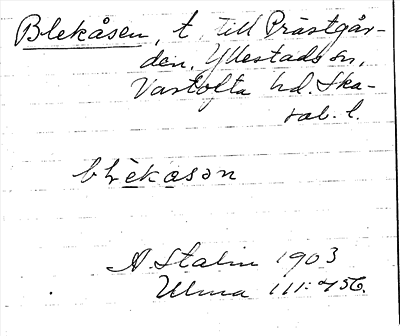 Blekåsen, t. till Prästgår-
den, Yllestads sn,
Vartofta hd. Ska-
rab. l.
blekasən
A. Stalin 1903
Ulma 111:456.